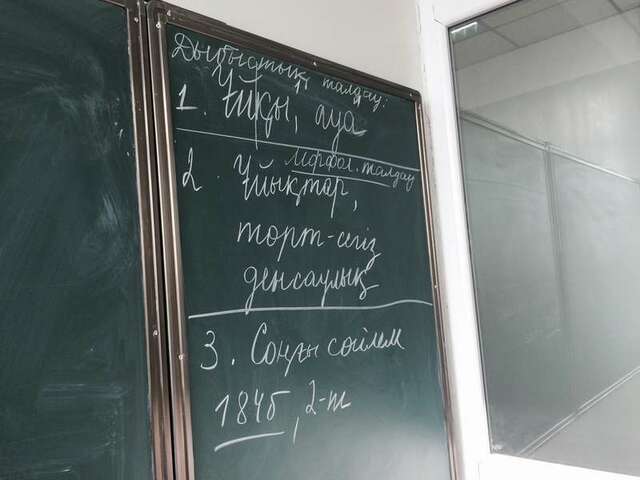 Дыбыстық талдау:
1. Ұйқы, ауа
Морфол. талдау
2. Ұйықтар,
төрт-сегіз
денсаулық
3. Соңғы сөйлем
184б, 2-т